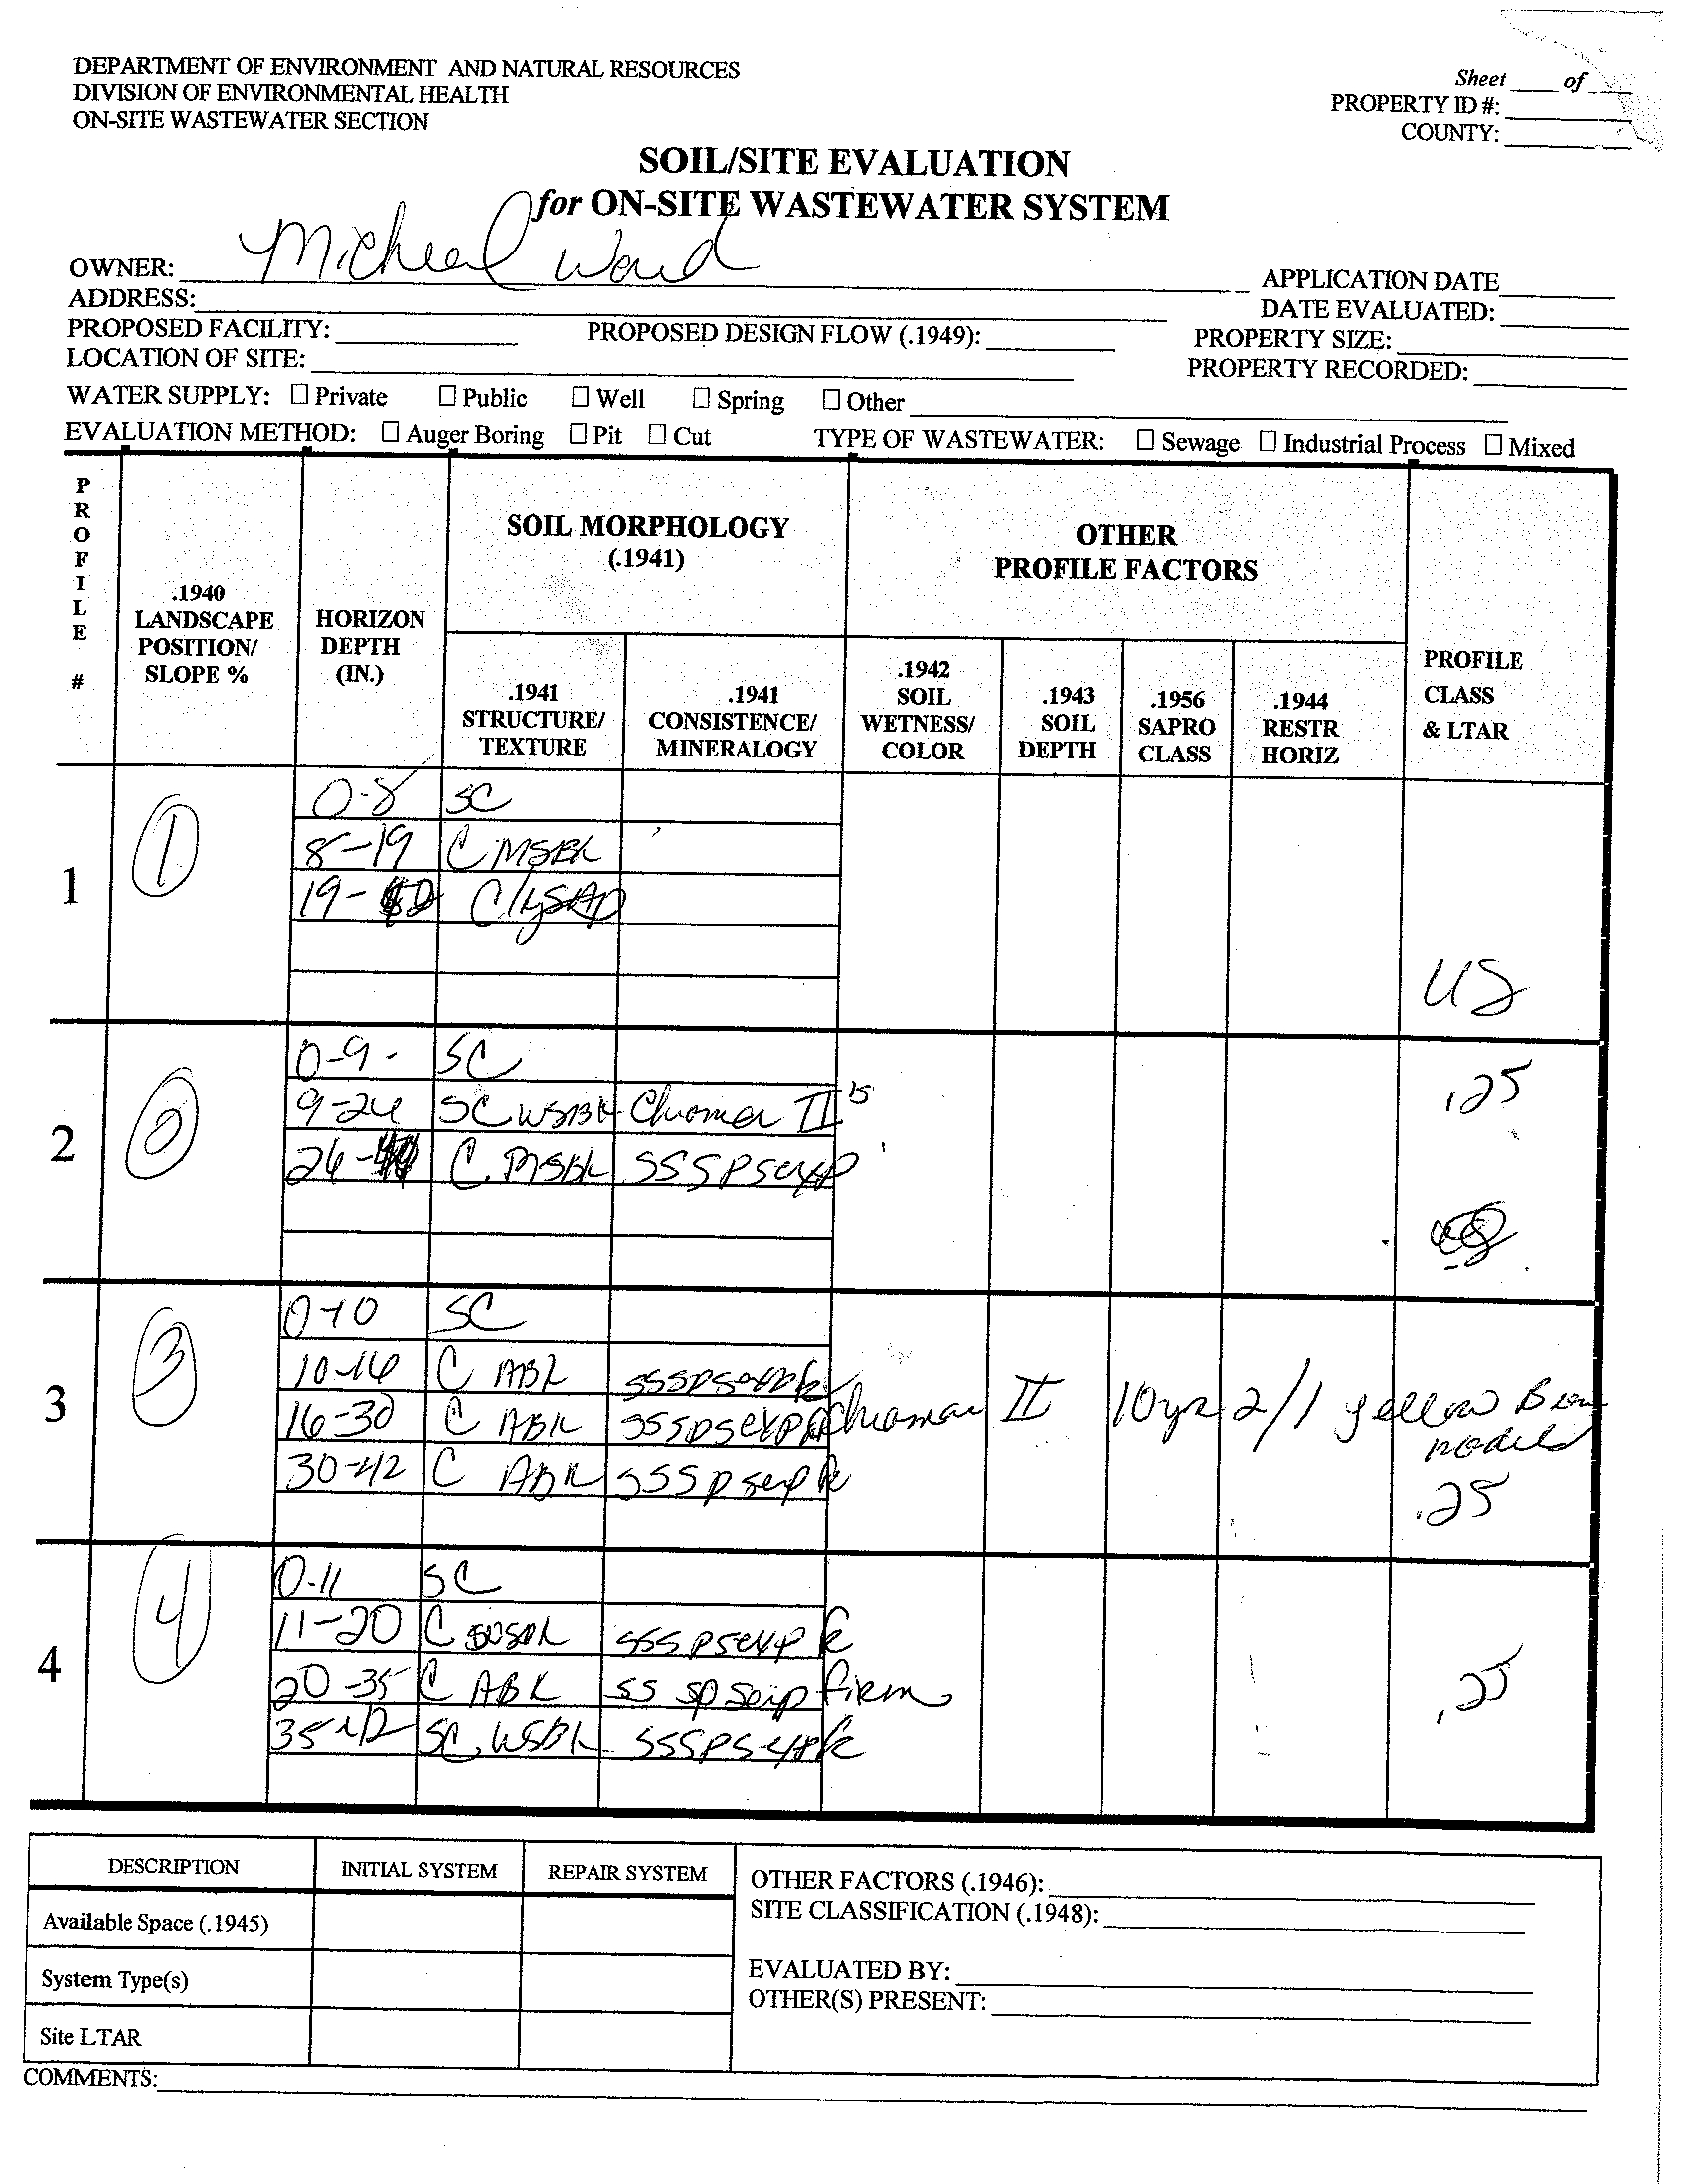 DEPARTMENT OF ENVIRONMENT AND NATURAL RESOURCES
DIVISION OF ENVIRONMENTAL HEALTH
ON-SITE WASTEWATER SECTION
Sheet ____ of ____
PROPERTY ID #:
COUNTY:
SOIL/SITE EVALUATION
for ON-SITE WASTEWATER SYSTEM
OWNER: Micheal Ward
ADDRESS:
APPLICATION DATE
DATE EVALUATED:
PROPOSED FACILITY: PROPOSED DESIGN FLOW (.1949): PROPERTY SIZE:
LOCATION OF SITE: PROPERTY RECORDED:
WATER SUPPLY: ☐ Private ☐ Public ☐ Well ☐ Spring ☐ Other
EVALUATION METHOD: ☐ Auger Boring ☐ Pit ☐ Cut TYPE OF WASTEWATER: ☐ Sewage ☐ Industrial Process ☐ Mixed
PROFILE #
.1940 LANDSCAPE POSITION/ SLOPE %
HORIZON DEPTH (IN.)
SOIL MORPHOLOGY
(.1941)
.1941 STRUCTURE/ TEXTURE
.1941 CONSISTENCE/ MINERALOGY
OTHER
PROFILE FACTORS
.1942 SOIL WETNESS/ COLOR
.1943 SOIL DEPTH
.1956 SAPRO CLASS
.1944 RESTR HORIZ
PROFILE CLASS & LTAR
1 1
0-8 SC
8-19 C MSBK
19- C/
US
2 2
0-9- SC
9-24 SC WSBK Chroma II 15
C MSBK SSSPSexp
.25
3 3
0-10 SC
10-16 C ABK SSSPSexp
16-30 C ABK SSSPSexp Chroma II 10yr 2/1 yellow
30-42 C ABK SSSPSexp
.25
4 4
0-11 SC
11-20 C SSSPSexp
20-35 C ABK SS SP Sexp firm
35-42 SC WSBK SSSPSexp
.25
DESCRIPTION INITIAL SYSTEM REPAIR SYSTEM
Available Space (.1945)
System Type(s)
Site LTAR
OTHER FACTORS (.1946):
SITE CLASSIFICATION (.1948):
EVALUATED BY:
OTHER(S) PRESENT:
COMMENTS: